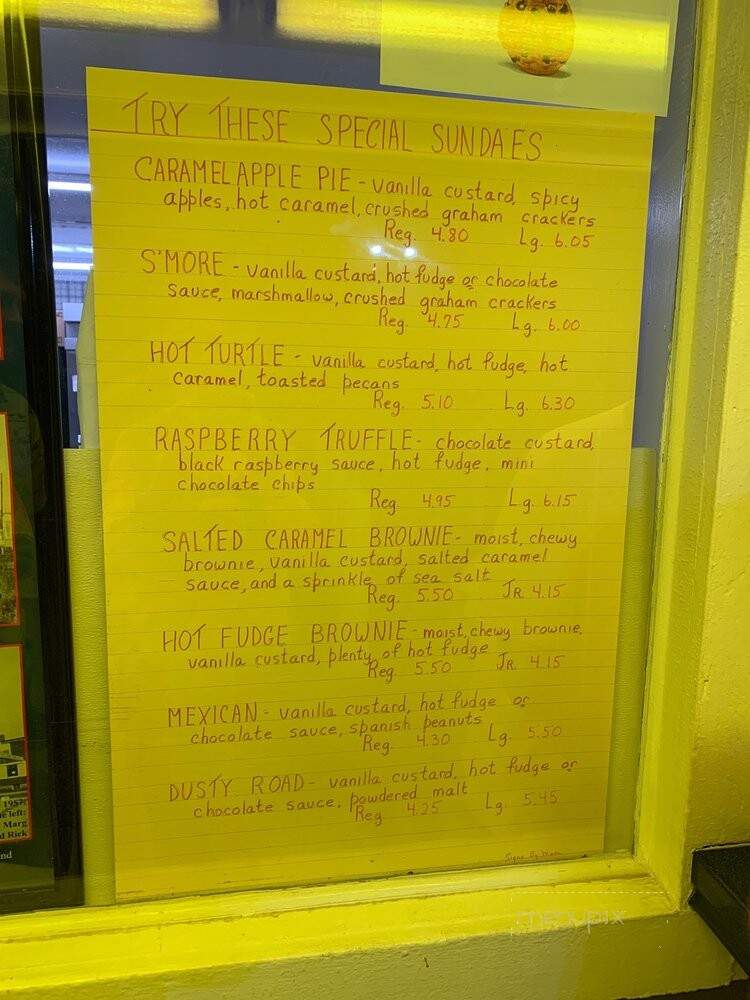 TRY THESE SPECIAL SUNDAES
CARAMEL APPLE PIE - vanilla custard, spicy
apples, hot caramel, crushed graham crackers
Reg. 4.80 Lg. 6.05
S'MORE - vanilla custard, hot fudge or chocolate
sauce, marshmallow, crushed graham crackers
Reg. 4.75 Lg. 6.00
HOT TURTLE - vanilla custard, hot fudge, hot
caramel, toasted pecans
Reg. 5.10 Lg. 6.30
RASPBERRY TRUFFLE - chocolate custard,
black raspberry sauce, hot fudge, mini
chocolate chips
Reg 4.95 Lg. 6.15
SALTED CARAMEL BROWNIE - moist, chewy
brownie, vanilla custard, salted caramel
sauce, and a sprinkle of sea salt
Reg. 5.50 JR 4.15
HOT FUDGE BROWNIE - moist, chewy brownie,
vanilla custard, plenty of hot fudge
Reg 5.50 JR. 4.15
MEXICAN - vanilla custard, hot fudge or
chocolate sauce, spanish peanuts
Reg. 4.30 Lg. 5.50
DUSTY ROAD - vanilla custard, hot fudge or
chocolate sauce, powdered malt
Reg 4.25 Lg. 5.45
Signs By
1957
left:
Marg
Rick
menupix